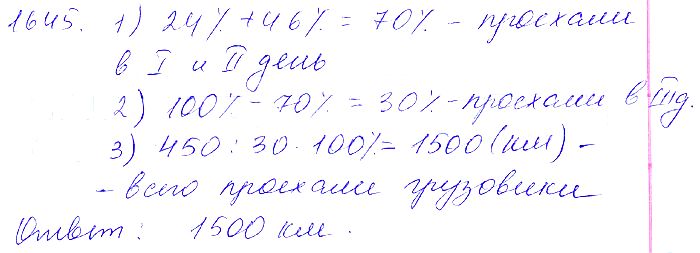 1645. 1) 24% + 46% = 70% - проехали
в I и II день
2) 100% - 70% = 30% - проехали в III д.
3) 450 : 30 · 100% = 1500 (км) -
- всего проехали грузовики
Ответ: 1500 км.